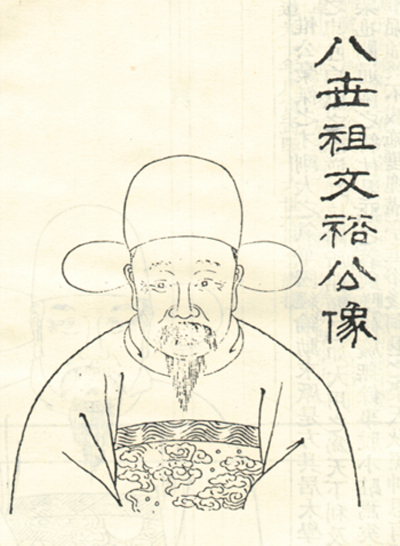 八世祖文裕公像